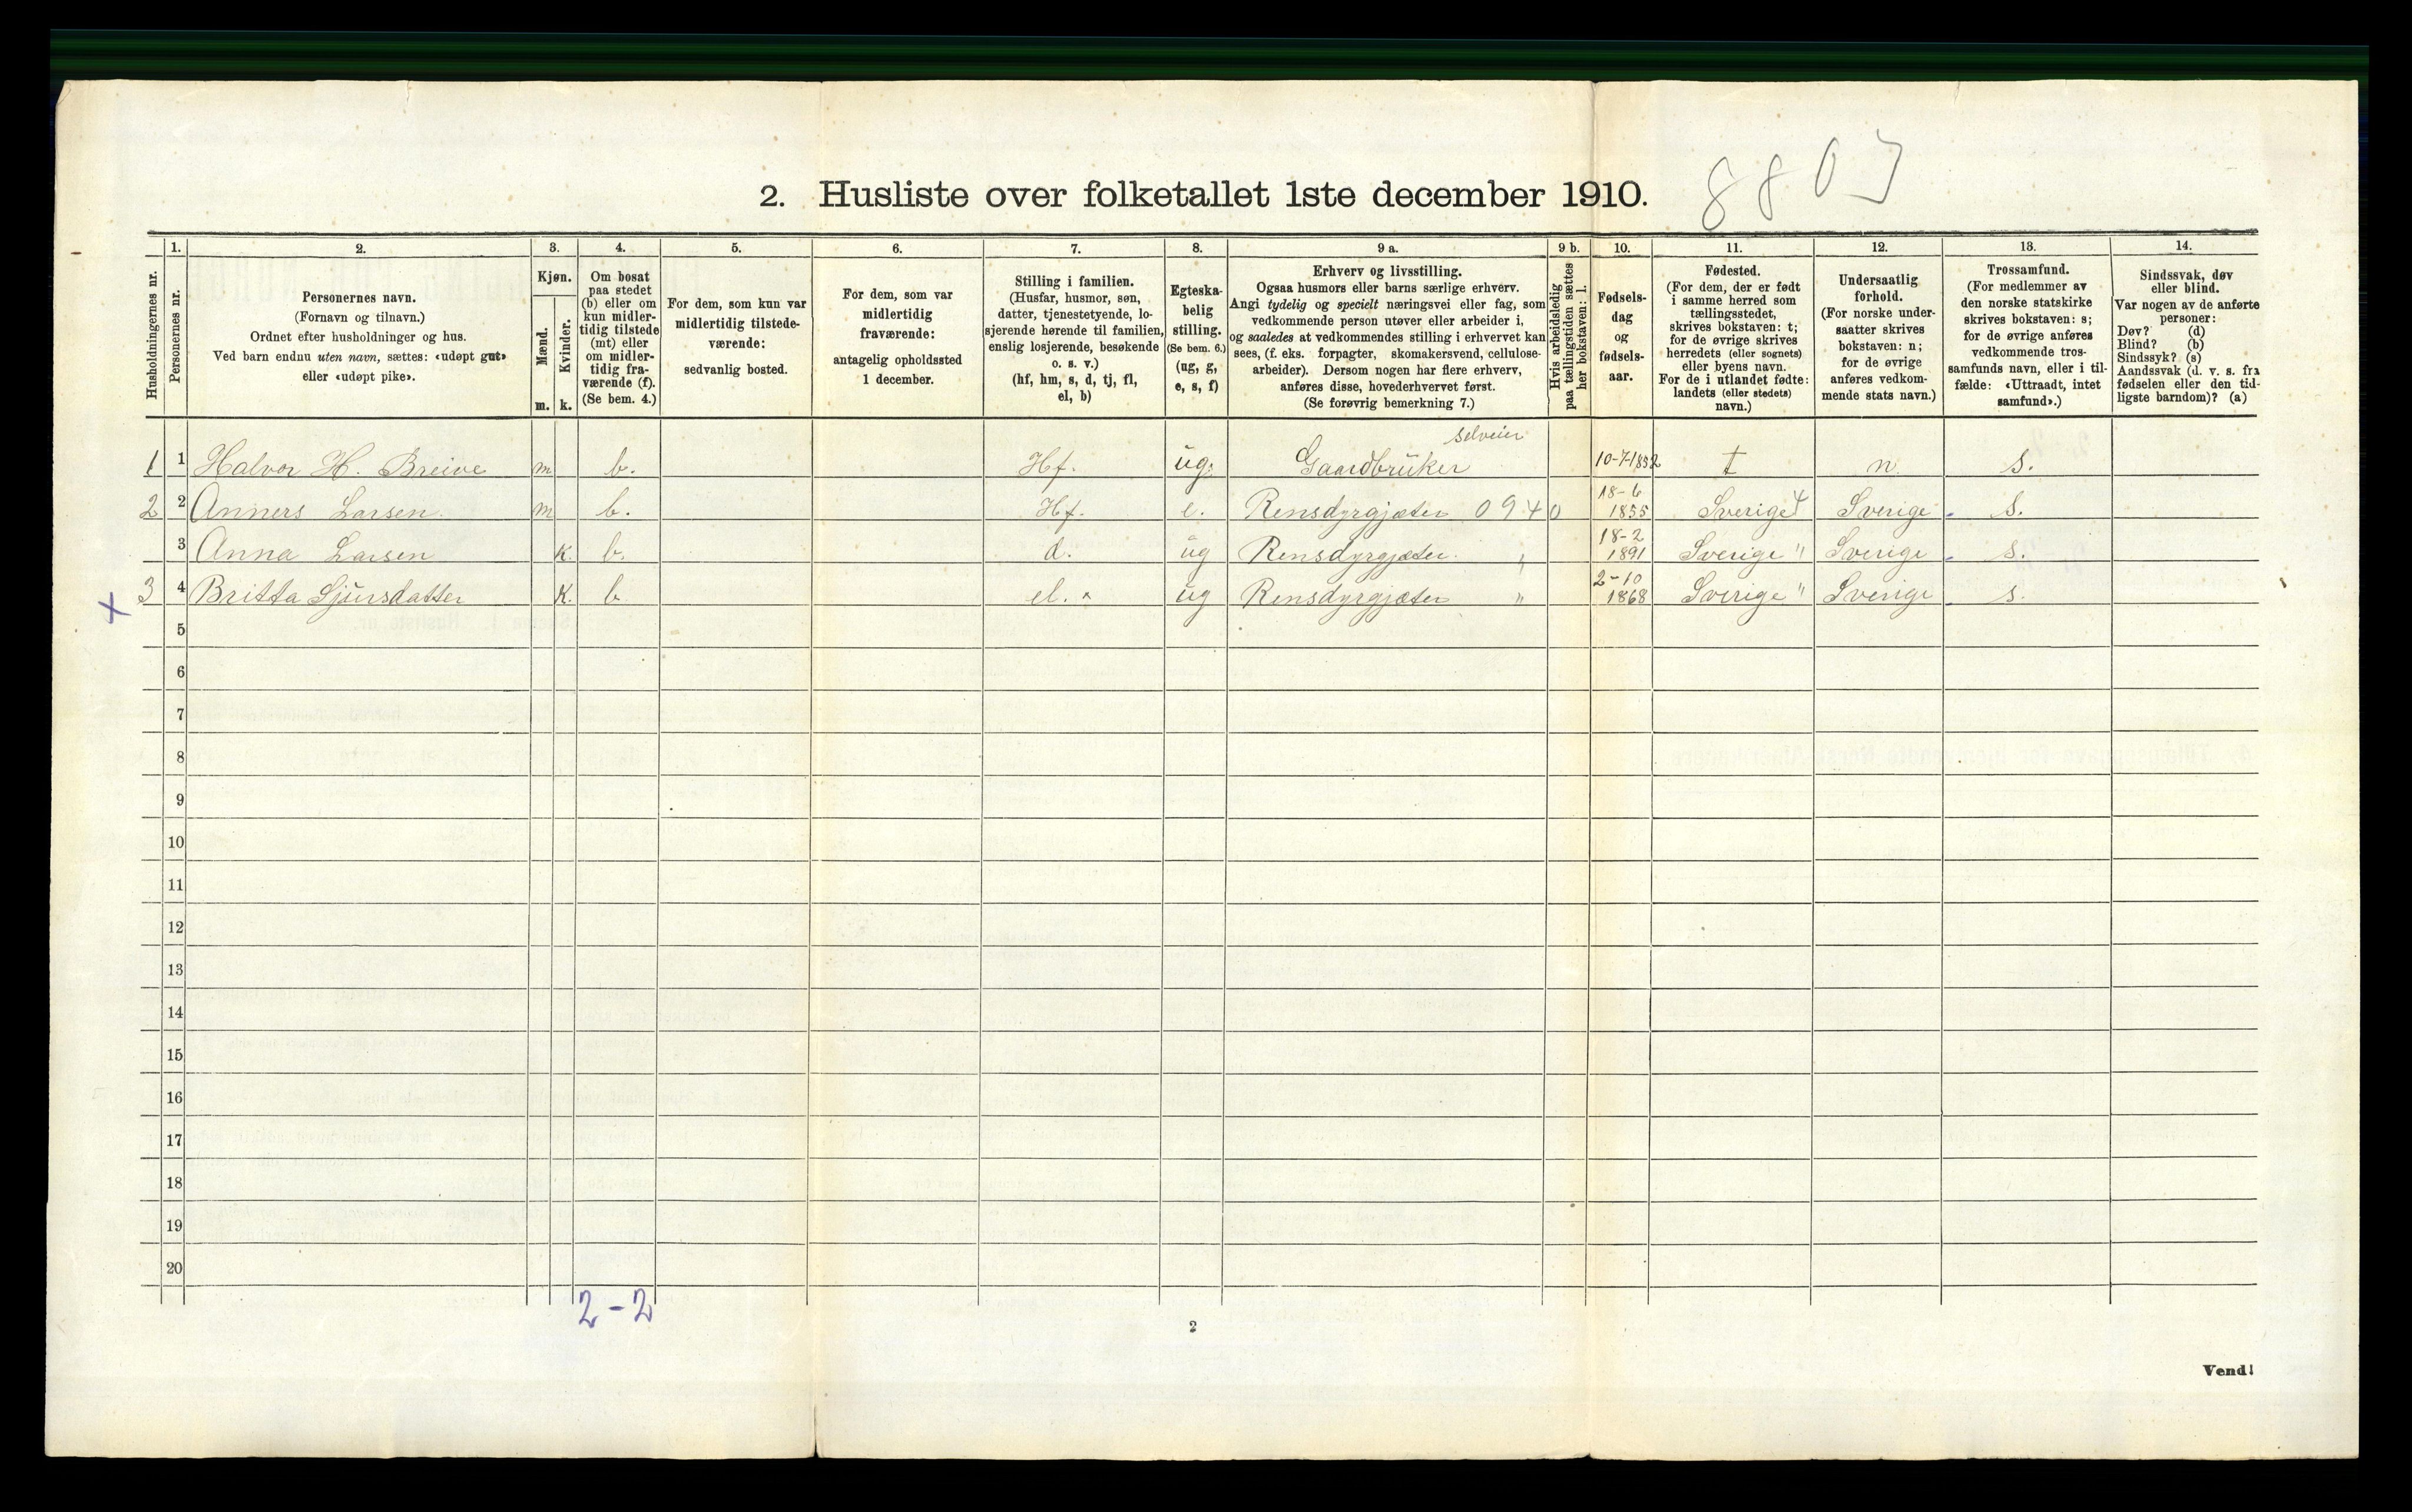 8807
2. Husliste over folketallet 1ste december 1910.
Husholdningernes nr.
1.
Personernes nr.
2.
Personernes navn.
(Fornavn og tilnavn.)
Ordnet efter husholdninger og hus.
Ved barn endnu uten navn, sættes: «udøpt gut»
eller «udøpt pike».
3.
Kjøn.
Mænd.
m.
Kvinder.
k.
4.
Om bosat
paa stedet
(b) eller om
kun midler-
tidig tilstede
(mt) eller
om midler-
tidig fra-
værende (f).
(Se bem. 4.)
5.
For dem, som kun var
midlertidig tilstede-
værende:
sedvanlig bosted.
6.
For dem, som var
midlertidig
fraværende:
antagelig opholdssted
1 december.
7.
Stilling i familien.
(Husfar, husmor, søn,
datter, tjenestetyende, lo-
sjerende hørende til familien,
enslig losjerende, besøkende
o. s. v.)
(hf, hm, s, d, tj, fl,
el, b)
8.
Egteska-
belig
stilling.
(Se bem. 6.)
(ug, g,
e, s, f)
9 a.
Erhverv og livsstilling.
Ogsaa husmors eller barns særlige erhverv.
Angi tydelig og specielt næringsvei eller fag, som
vedkommende person utøver eller arbeider i,
og saaledes at vedkommendes stilling i erhvervet kan
sees, (f. eks. forpagter, skomakersvend, cellulose-
arbeider). Dersom nogen har flere erhverv,
anføres disse, hovederhvervet først.
(Se forøvrig bemerkning 7.)
9 b.
Hvis arbeidsledig
paa tællingstiden sættes
her bokstaven: l.
10.
Fødsels-
dag
og
fødsels-
aar.
11.
Fødested.
(For dem, der er født
i samme herred som
tællingsstedet,
skrives bokstaven: t;
for de øvrige skrives
herredets (eller sognets)
eller byens navn.
For de i utlandet fødte:
landets (eller stedets)
navn.)
12.
Undersaatlig
forhold.
(For norske under-
saatter skrives
bokstaven: n;
for de øvrige
anføres vedkom-
mende stats navn.)
13.
Trossamfund.
(For medlemmer av
den norske statskirke
skrives bokstaven: s;
for de øvrige anføres
vedkommende tros-
samfunds navn, eller i til-
fælde: «Uttraadt, intet
samfund».)
14.
Sindssvak, døv
eller blind.
Var nogen av de anførte
personer:
Døv? (d)
Blind? (b)
Sindssyk? (s)
Aandssvak (d. v. s. fra
fødselen eller den tid-
ligste barndom)? (a)
selveier
1 1 Halvor H. Breive m b. Hf. ug. Gaardbruker 10-7-1852 t n s.
2 2 Anners Larsen. m b. Hf. e. Rensdyrgjæter 0940 18-6 1855 Sverige 4 Sverige s.
3 Anna Larsen K. b. d. ug Rensdyrgjæter. " 18-2 1891 Sverige " Sverige s.
3 4 Britta Sjursdatter K. b. el. x ug Rensdyrgjæter " 2-10 1868 Sverige " Sverige s.
x
5
6
7
8
9
10
11
12
13
14
15
16
17
18
19
20
2-2
2
Vend!